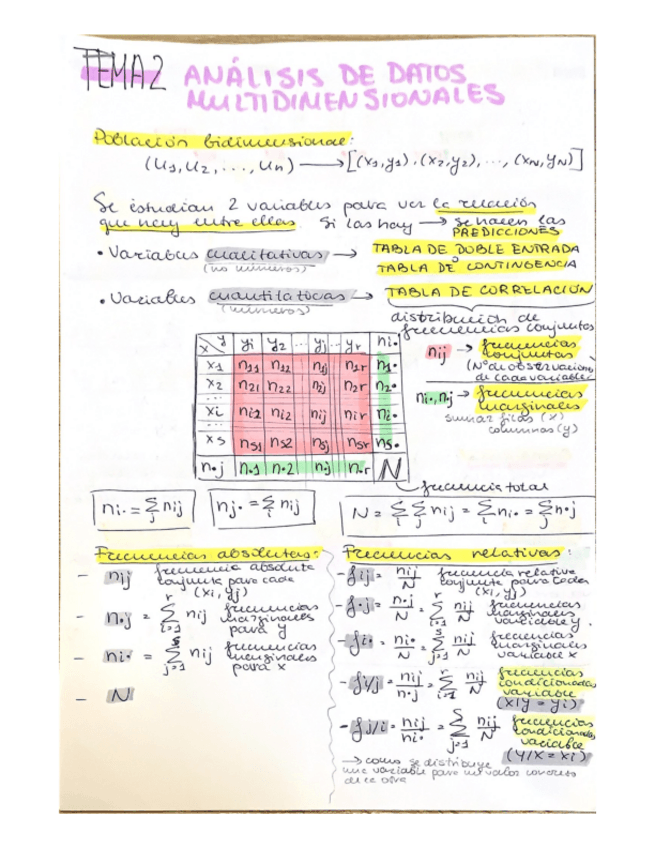 TEMA 2 ANÁLISIS DE DATOS
MULTIDIMENSIONALES
Población bidimensional:
(u1, u2, ..., un) → [(x1,y1), (x2,y2), ..., (xN,yN)]
Se estudian 2 variables para ver la relación
que hay entre ellas. Si las hay → se hacen las
PREDICCIONES
• Variables cualitativas → TABLA DE DOBLE ENTRADA
(no números) TABLA DE CONTINGENCIA
• Variables cuantitativas → TABLA DE CORRELACIÓN
(números)
distribución de
frecuencias conjuntas
x y yi y2 ... yj ... yr ni•
x1 n11 n12 n1j n1r n1•
x2 n21 n22 nij n2r n2•
...
xi ni1 ni2 nij nir ni•
...
xs ns1 ns2 nsj nsr ns•
n•j n•1 n•2 n•j n•r N
nij → frecuencias
conjuntas
(Nº de observaciones
de cada variable)
ni•, n•j → frecuencias
marginales
sumar filas (x)
columnas (y)
frecuencia total
ni• = Σj nij
nj• = Σi nij
N = Σi Σj nij = Σi ni• = Σj n•j
Frecuencias absolutas:
- nij frecuencia absoluta
conjunta para cada
(xi, yj)
- n•j = Σ(i=1, r) nij frecuencias
marginales
para y
- ni• = Σ(j=1, s) nij frecuencias
marginales
para x
- N
Frecuencias relativas:
- fij = nij/N frecuencia relativa
conjunta para cada
(xi, yj)
- f•j = n•j/N = Σ(i=1, r) nij/N frecuencias
marginales
variable y.
- fi• = ni•/N = Σ(j=1, s) nij/N frecuencias
marginales
variable x
- fi/j = nij/n•j = Σ(i=1, r) nij/N frecuencias
condicionadas
variable
(x/y = yi)
- fj/i = nij/ni• = Σ(j=1, s) nij/N frecuencias
condicionadas
variable
(y/x = xi)
→ como se distribuye
una variable para un valor concreto
de la otra